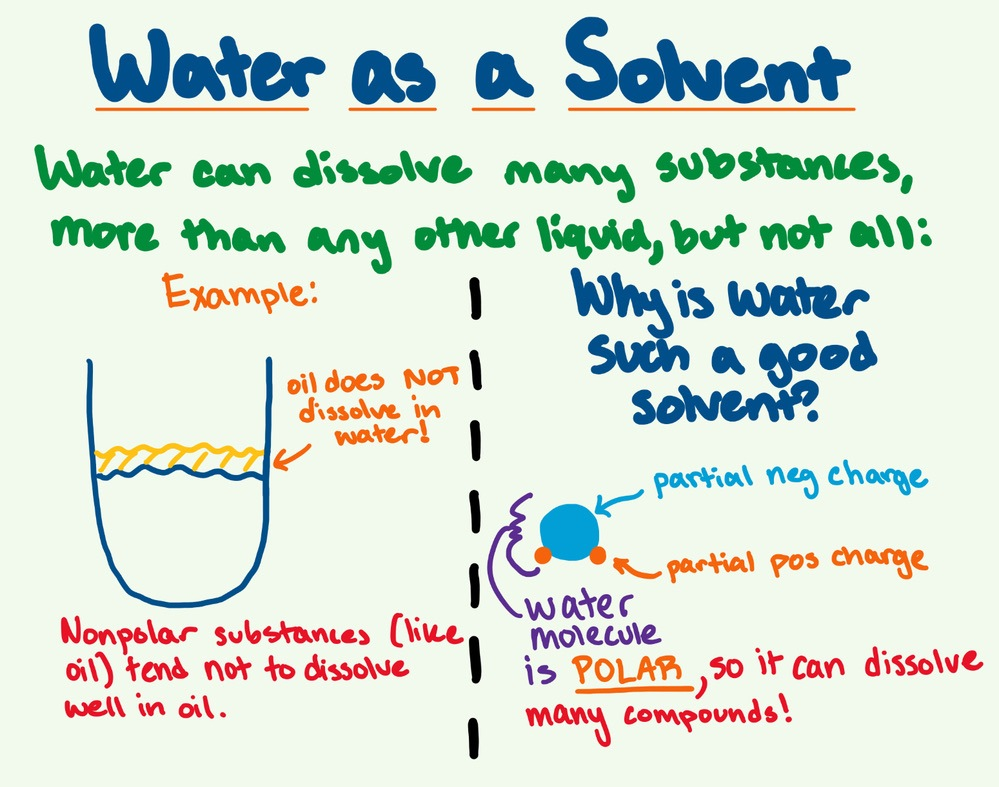 Water as a Solvent
Water can dissolve many substances,
more than any other liquid, but not all:
Example:
oil does NOT
dissolve in
water!
Nonpolar substances (like
oil) tend not to dissolve
well in oil.
Why is water
such a good
solvent?
partial neg charge
partial pos charge
water
molecule
is POLAR, so it can dissolve
many compounds!